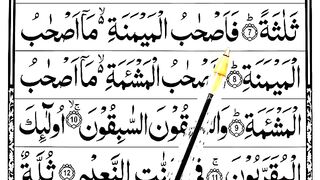 ثَلٰثَةً ﴿7﴾ فَاَصْحٰبُ الْمَيْمَنَةِ ۙ مَاۤ اَصْحٰبُ
الْمَيْمَنَةِ ﴿8﴾ الْمَشْـَٔمَةِ ۙ مَاۤ اَصْحٰبُ
الْمَشْـَٔمَةِ ﴿9﴾ السّٰبِقُوْنَ ﴿10﴾ اُولٰٓئِكَ
الْمُقَرَّبُوْنَ ﴿11﴾ النَّعِيْمِ ﴿12﴾ ثُلَّةٌ